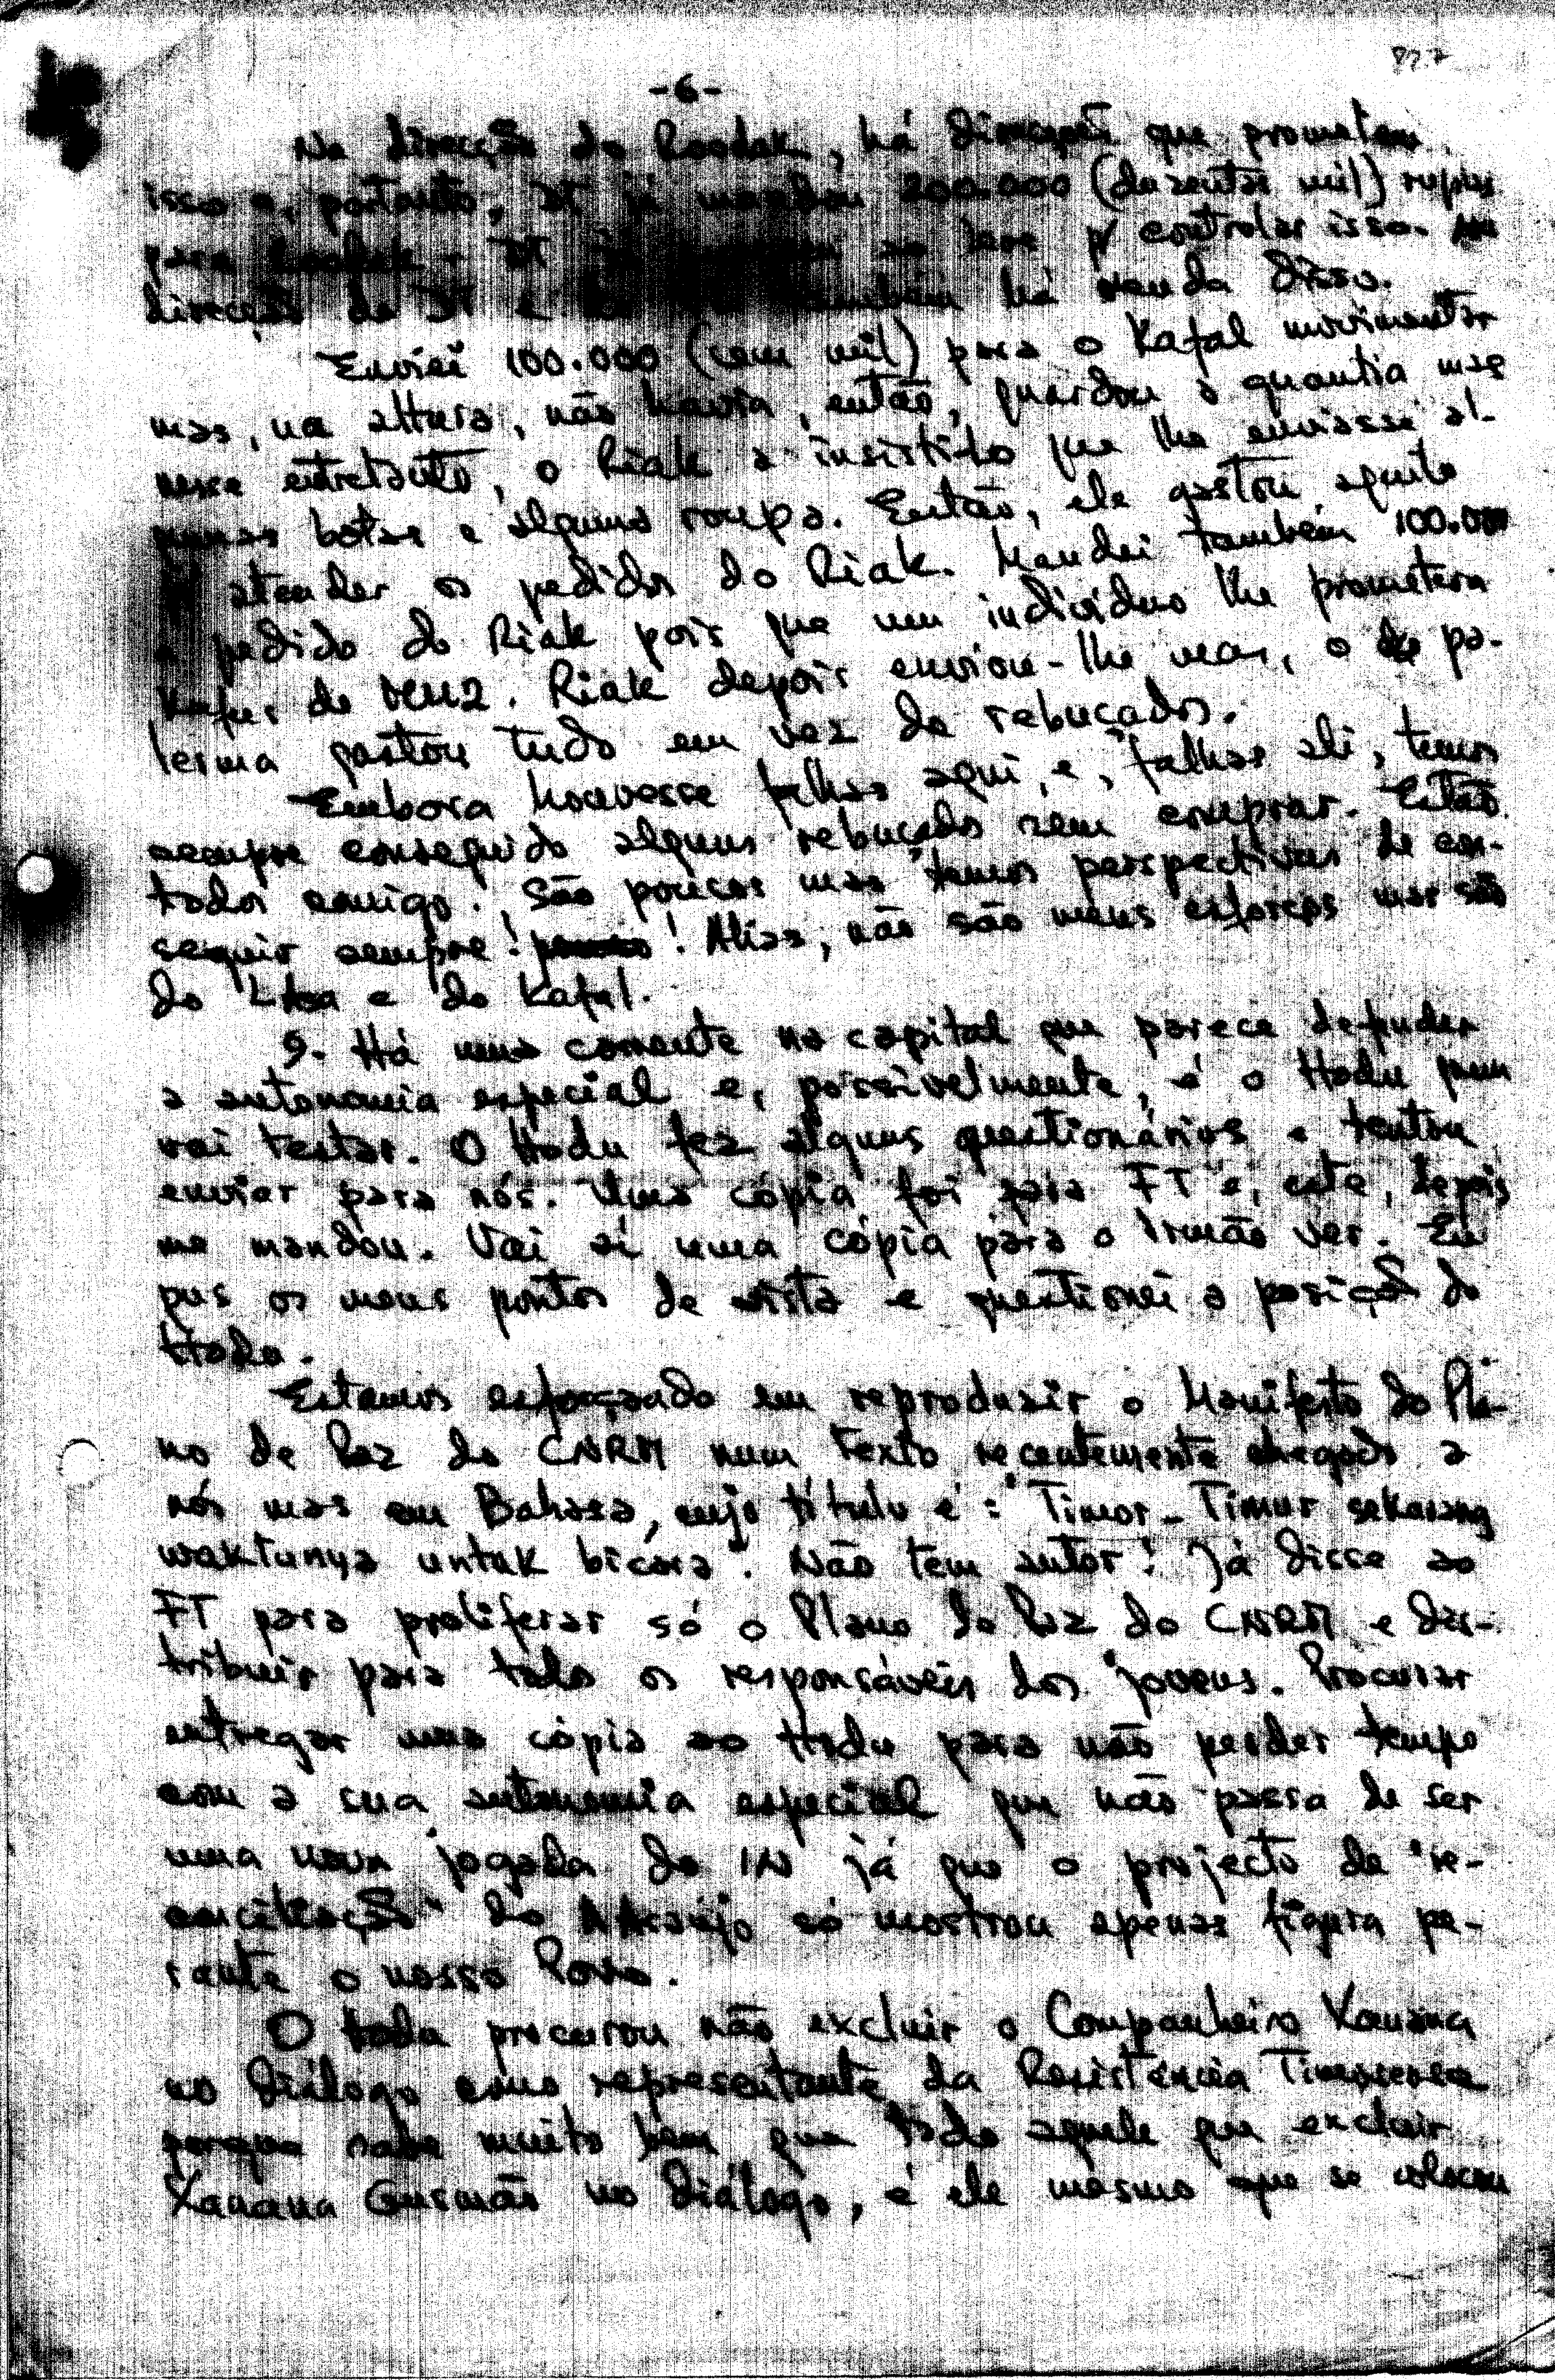 -6-
Na direcção do Roodak, há direcção que prometem
isso e, portanto, DT já mandou 200.000 (duzentas mil) rupias
para Roodak - DT já ao Leve p/ controlar isso. Na
direcção do DT e também há venda disso.
Enviei 100.000 (cem mil) para o Kafal movimentar
mas, na altura, não havia, então, guardou a quantia mas
nesse entretanto, o Riak a insistido que lhe enviasse al-
gumas botas e alguma roupa. Então, ele gastou aquilo
p/ atender os pedidos do Riak. Mandei também 100.000
a pedido do Riak pois que um indivíduo lhe prometera
Kafur de MU2. Riak depois enviou-lhe mas, o de pa-
lerma gastou tudo em vez de rebuçados.
Embora houvesse falhas aqui, e, falhas ali, temos
sempre conseguido alguns rebuçados sem comprar. Estão
todos comigo. São poucos mas temos perspectivas de con-
seguir sempre! ! Aliás, não são meus esforços mas são
do L e do Kafal.
9. Há uma corrente na capital que parece defender
a autonomia especial e, possivelmente, é o Hodu quem
vai testar. O Hodu fez alguns questionários e tentou
enviar para nós. Uma cópia foi para FT e, este, depois
me mandou. Vai aí uma cópia para o Irmão ver. Eu
pus os meus pontos de vista e questionei a posição do
Hodu.
Estamos esforçando em reproduzir o Manifesto do Pla-
no de Paz do CNRM num texto recentemente chegado a
nós mas em Bahasa, cujo título é: "Timor-Timur sekarang
waktunya untuk bicara". Não tem autor! Já disse ao
FT para proliferar só o Plano de Paz do CNRM e dis-
tribuir para todos os responsáveis dos jovens. Procurar
entregar uma cópia ao Hodu para não perder tempo
com a sua autonomia especial que não passa de ser
uma nova jogada do IN já que o projecto de "re-
conciliação" do AAraújo só mostrou apenas figura pe-
rante o nosso Povo.
O Hodu procurou não excluir o Companheiro Xanana
no Diálogo como representante da Resistência Timorense
porque sabe muito bem que todo aquele que excluir
Xanana Gusmão no Diálogo, é ele mesmo que se colocou